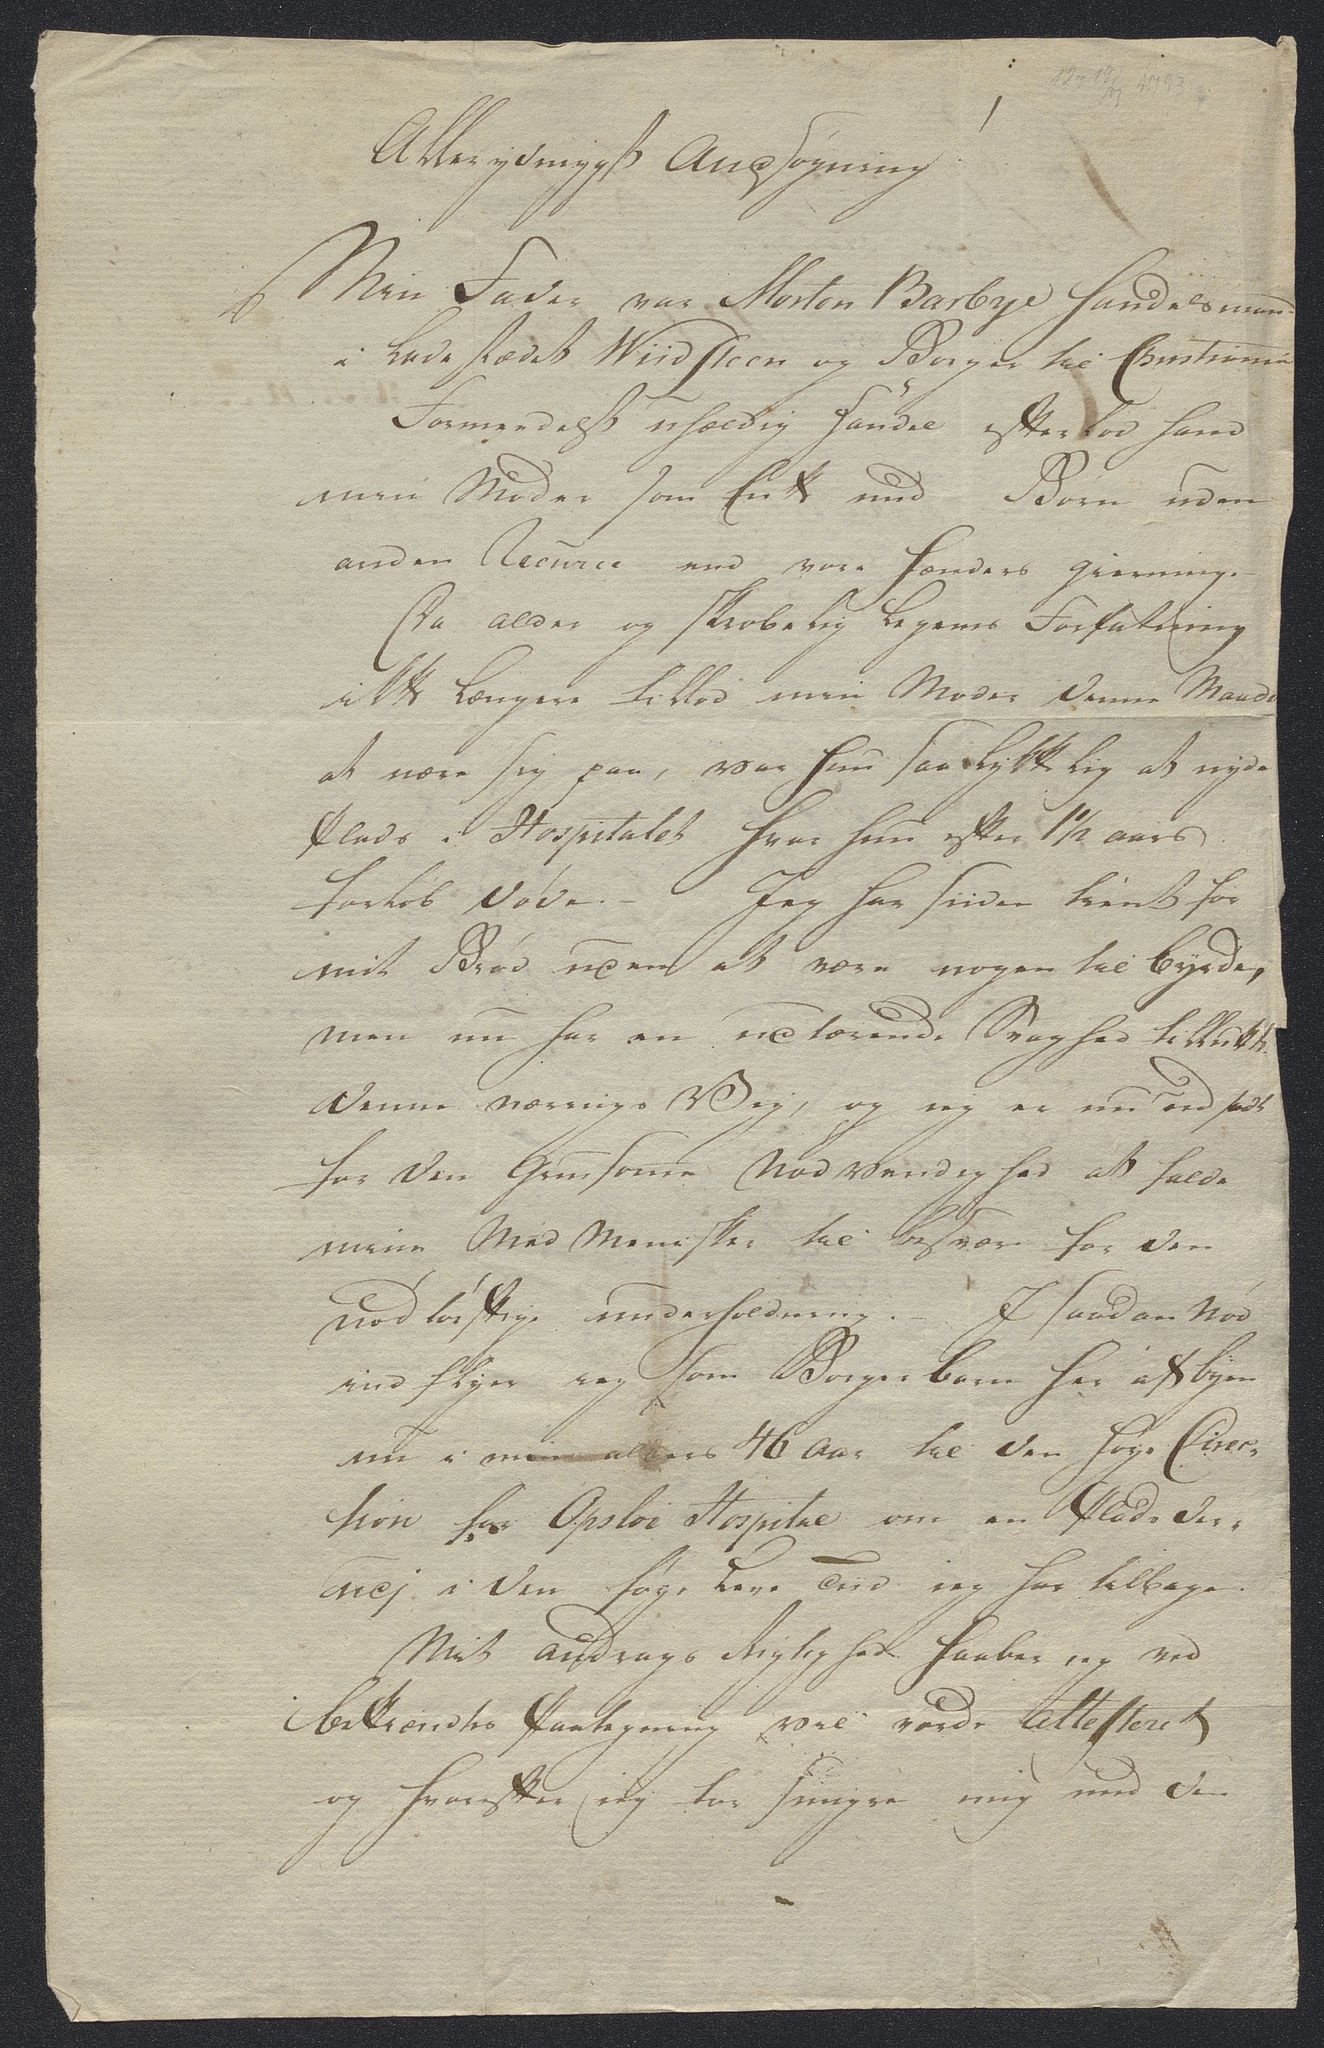 Allerydmygst Ansøgning
Min Fader var Morten Barbye Handelsmand
i Ladestædet Wiidsteen og Borger til Christiania
Formedelst uheldig Handel efterlod hand
min Moder som Enke med Børn uden
anden Recurce end vore Hænders gierning.
Da alder og skrøbelig Legems Forfatning
ikke længere tillod min Moder denne Maade
at nære sig paa, var hun saa lykkelig at nyde
Plads i Hospitalet hvor hun efter 1½ aars
forløb døde. – Jeg har siiden tient for
mit Brød uden at være nogen til byrde,
men nu har en udtærende Svaghed tillukt
denne nærrings Vej, og jeg er nu udsadt
for den Grusomme Nødvendighed at falde
mine Med Mennisker til besvær for den
nødtørftige underholdning. – I saadan Nød
indflyer jeg som Borgerbarn her af byen
nu i min alders 46 Aar til den høye Direc-
tion for Opsloe Hospital om en Plads der-
udj i den føye Leve Tiid jeg har tilbage.
Mit andrags Rigtighed haaber jeg ved
bekrændtes Paategning vil vorde attesteret
og hvorefter jeg tør smigre mig med den